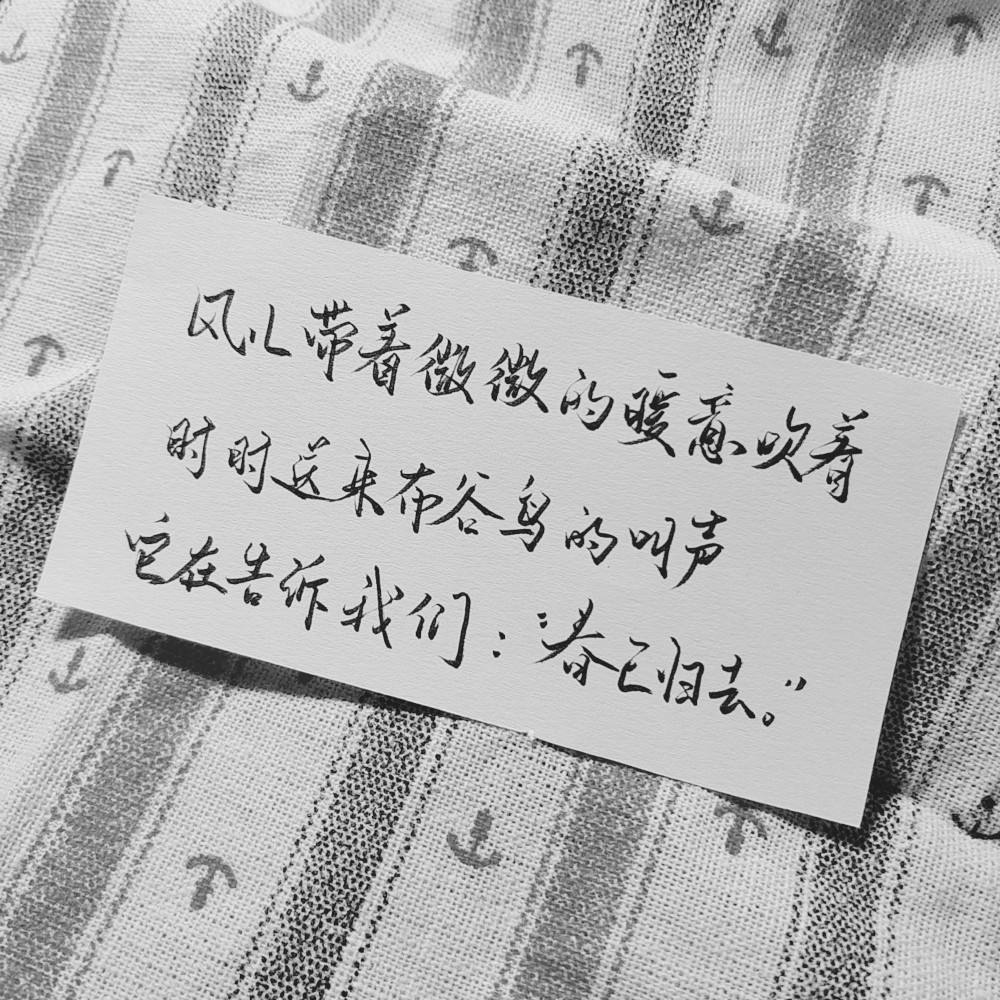 风儿带着微微的暖意吹着
时时送来布谷鸟的叫声
它在告诉我们：“春已归去。”